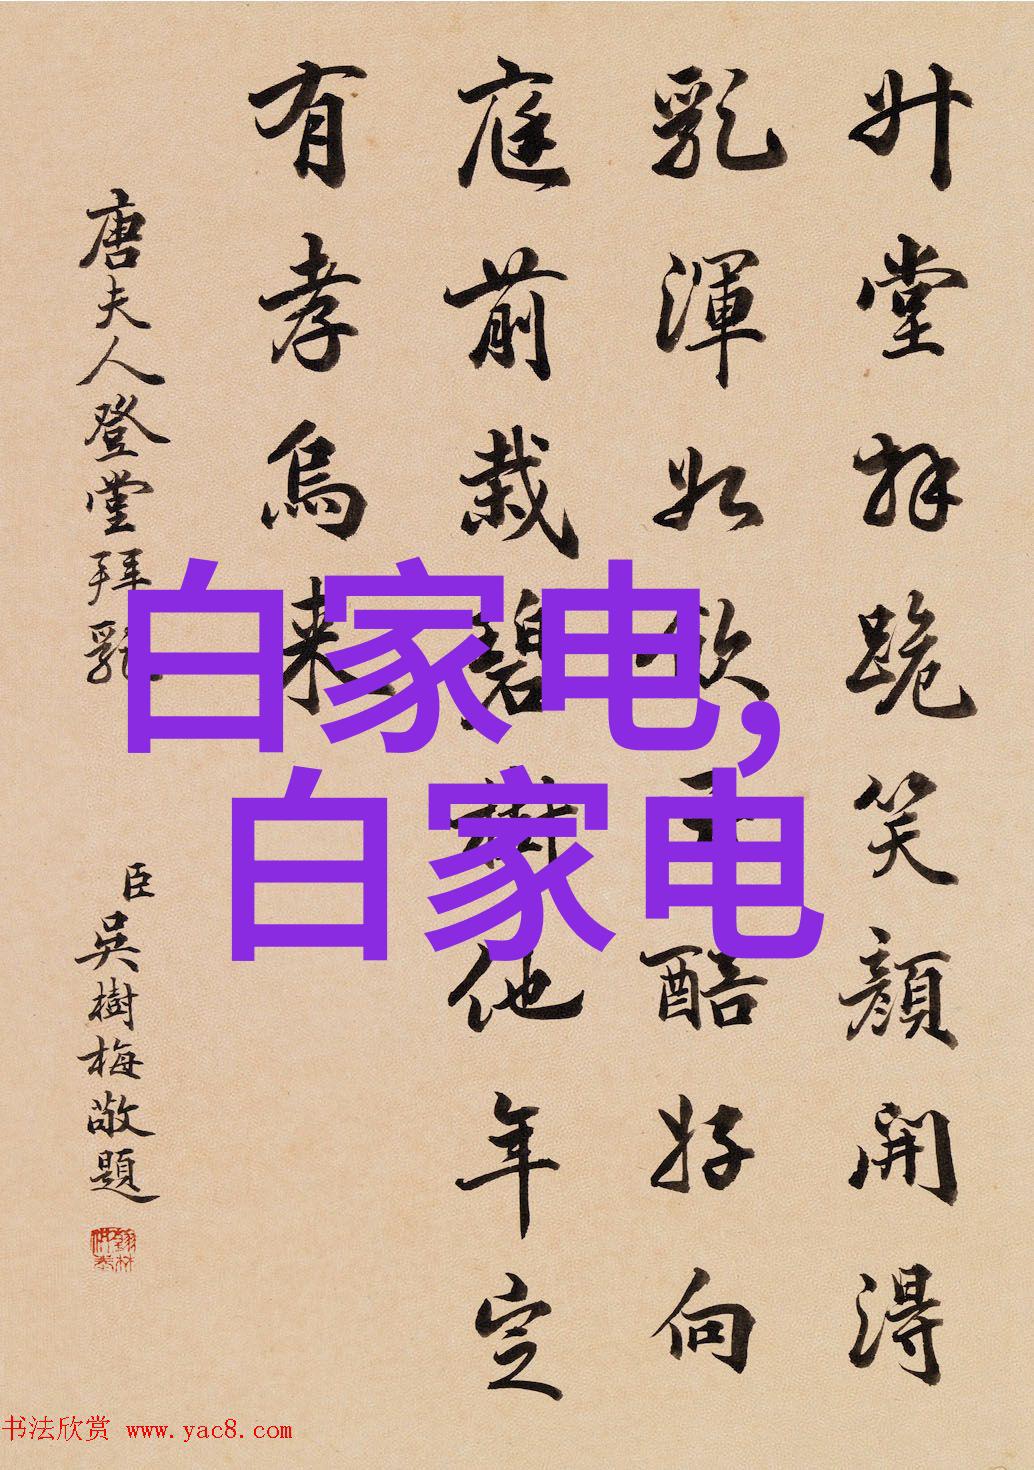 升堂拜跪笑顏開得
乳渾如飲玉醅好向
庭前栽碧樹他年定
有孝烏來
唐夫人登堂拜乳
臣吳樹梅敬題
白家电,
白家电
书法欣赏 www.yac8.com